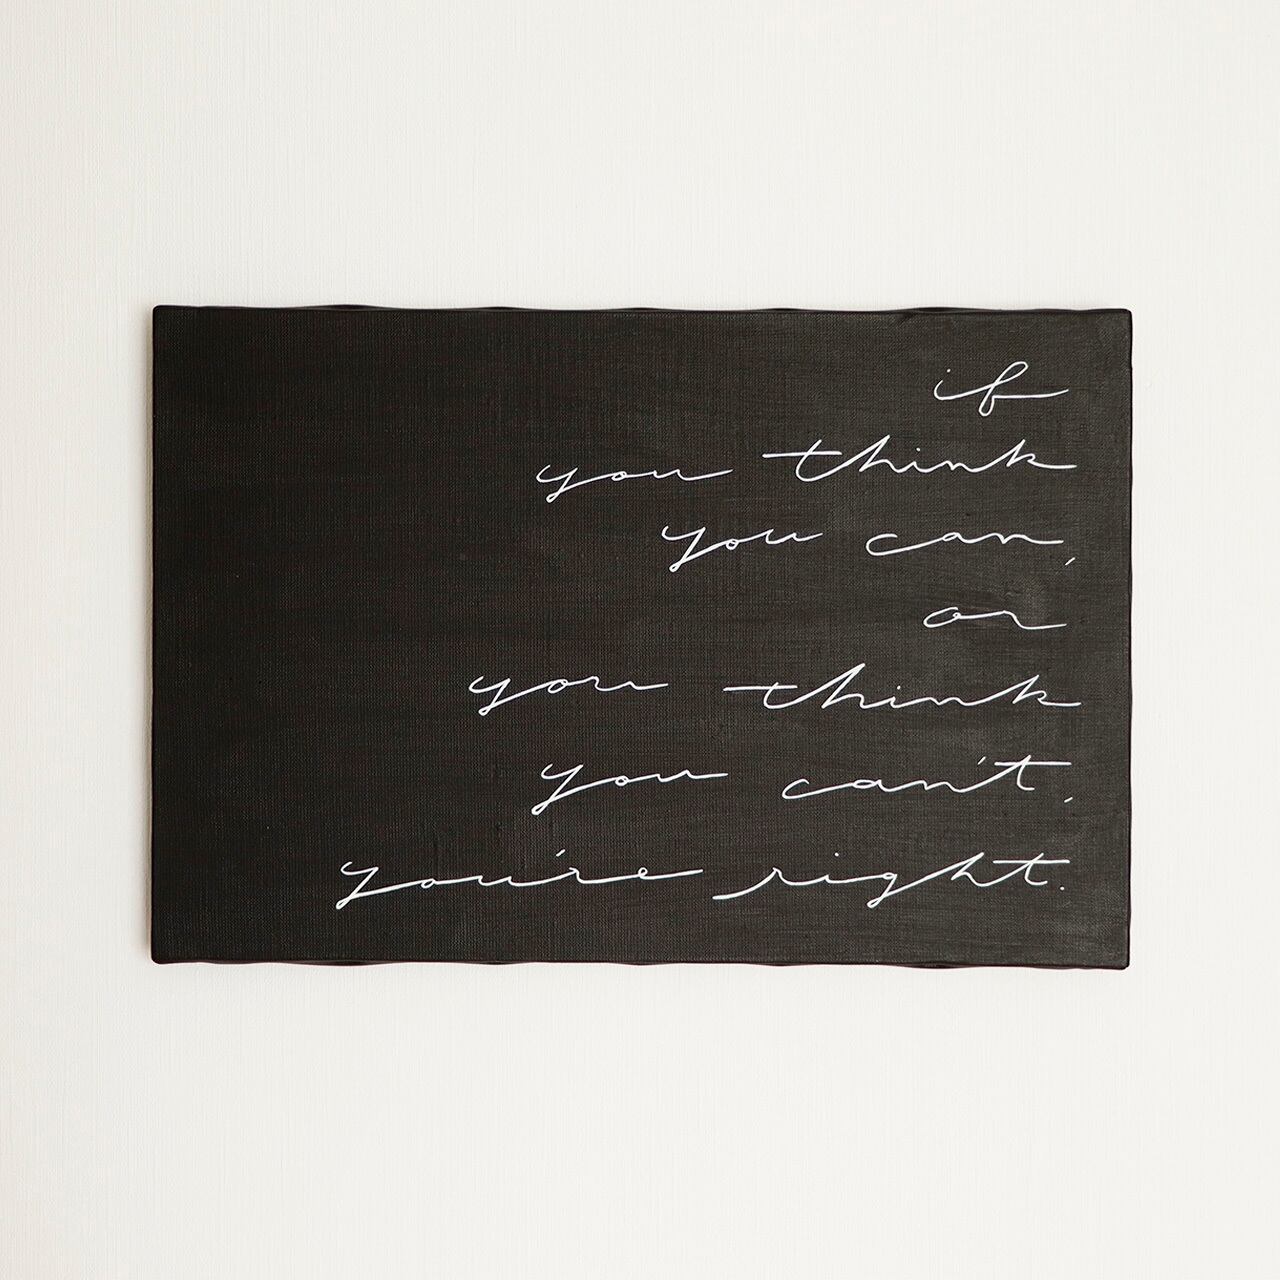 if
you think
you can,
or
you think
you can't,
you're right.